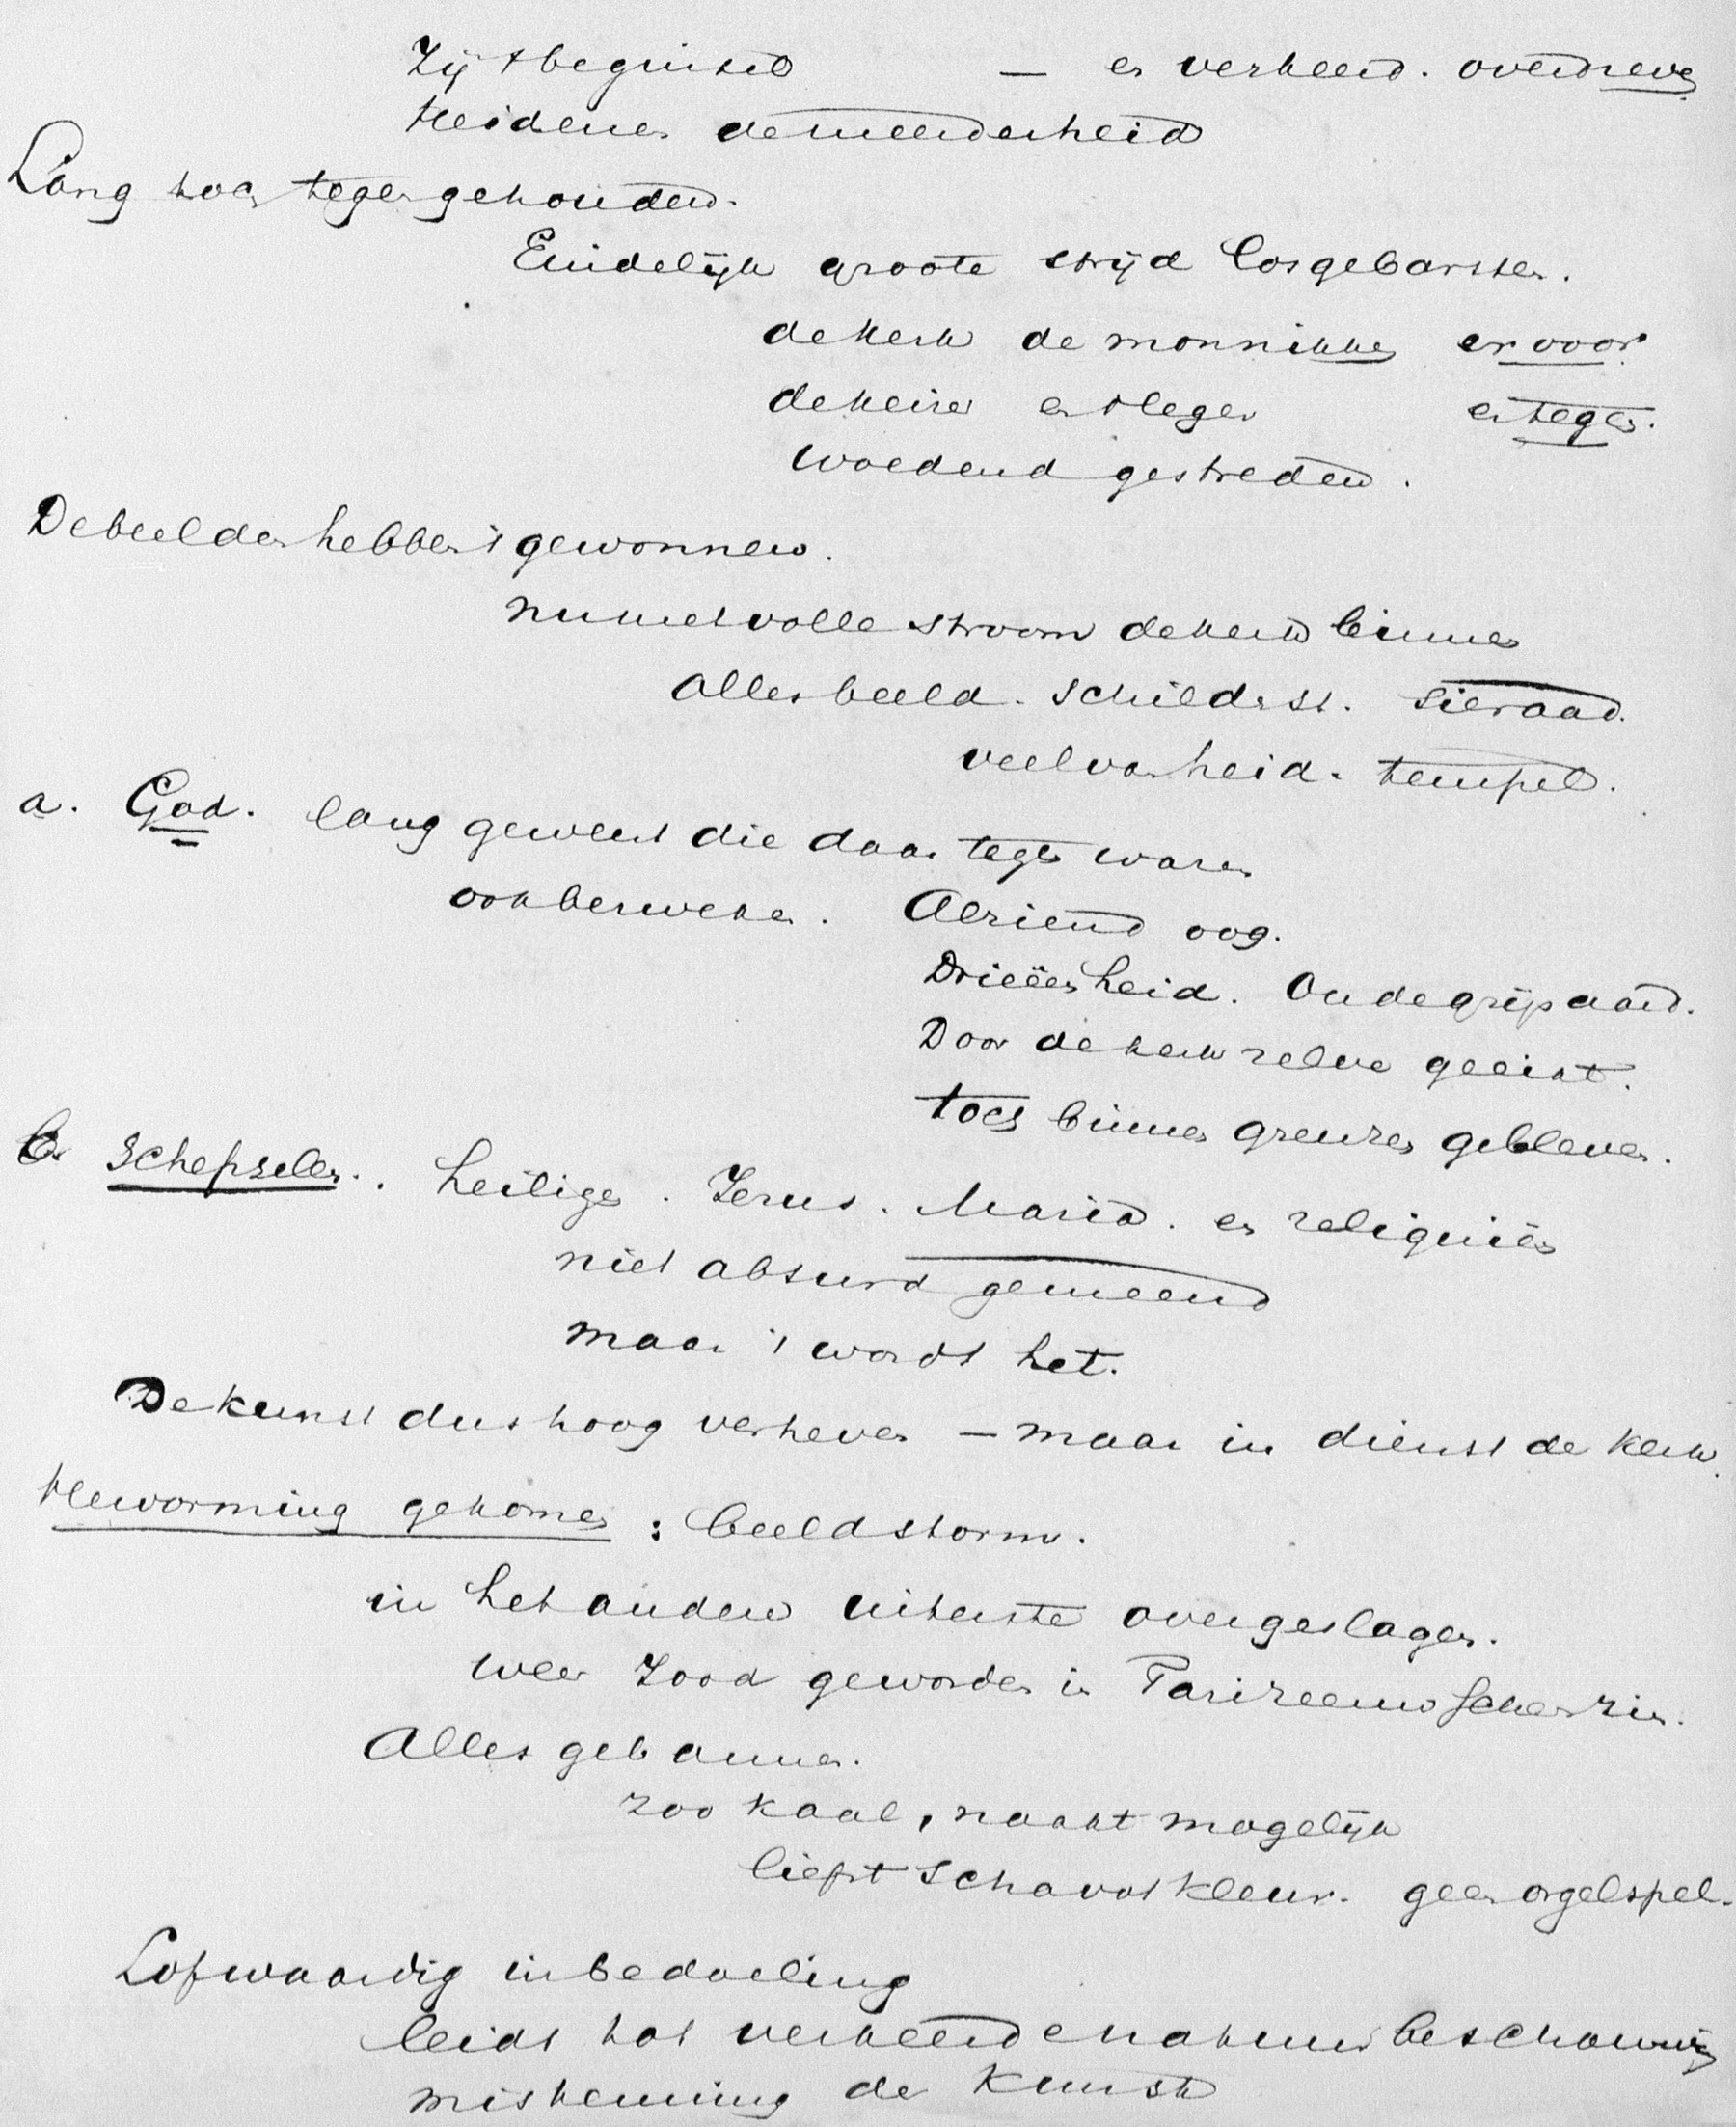 Zij 't beginsel — en verkeerd. overdreven
Heidenen de meerderheid
Lang hoe tegengehouden.
Eindelijk groote strijd losgebarsten.
de kerk de monnikken er voor
de keizer en 't leger er tegen.
Woedend gestreden.
De beelden hebben 't gewonnen.
nu met volle stroom de kerk binnen
Alles beeld. Schilderst. Sieraad.
veelvarheid. tempel.
a. God. lang geweest die daar tegen waren
ook bezweken. Alziend oog.
Drieëenheid. Oude grijsaard.
Door de kerk zelve geeischt.
toch binnen grenzen gebleven.
b. Schepselen. heiligen. Jezus. Maria. en reliquiën
niet absurd gemeend
maar 't wordt het.
De kunst dus hoog verheven – maar in dienst de kerk.
Hervorming gekomen: beeldstorm.
in het andere uiterste overgeslagen.
weer Jood geworden in Farizeeuwschen zin.
Alles gebannen.
zoo kaal, naakt mogelijk
liefst schavotkleur. geen orgelspel.
Lofwaardig in bedoeling
leidt tot verkeerde natuurbeschouwing
miskenning de kunst